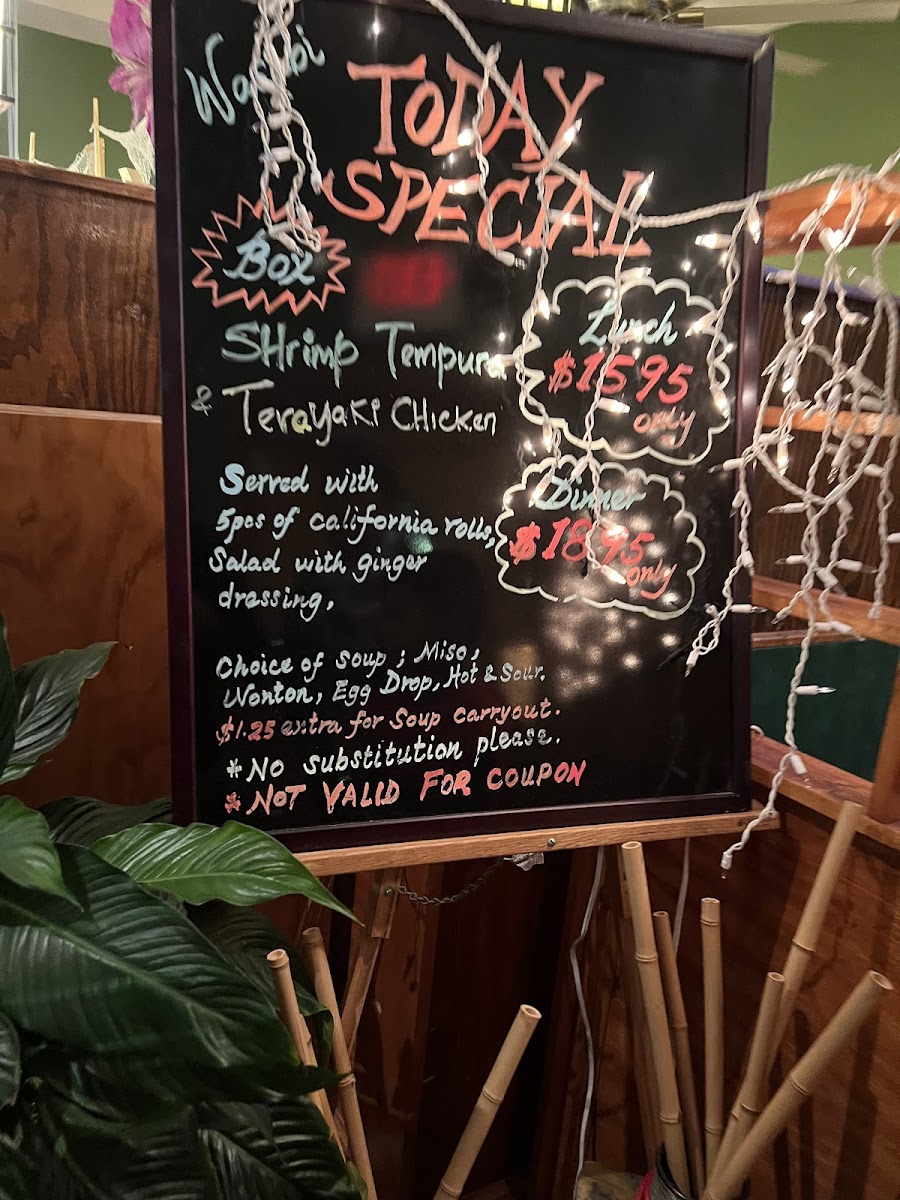 Wasabi
TODAY
SPECIAL
Box
SHrimp Tempura
& TerayaKi CHicken
Lunch
$15 95
only
Dinner
$18 95
only
Served with
5pcs of california rolls,
Salad with ginger
dressing,
Choice of soup ; Miso,
Wonton, Egg Drop, Hot & Sour.
$1.25 extra for Soup carryout.
*No substitution please.
*NOT VALID FOR COUPON